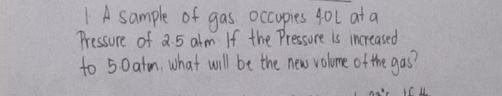 1 A sample of gas occupies 4.0L at a
Pressure of 2.5 atm. If the Pressure is increased
to 5.0atm, what will be the new volume of the gas?